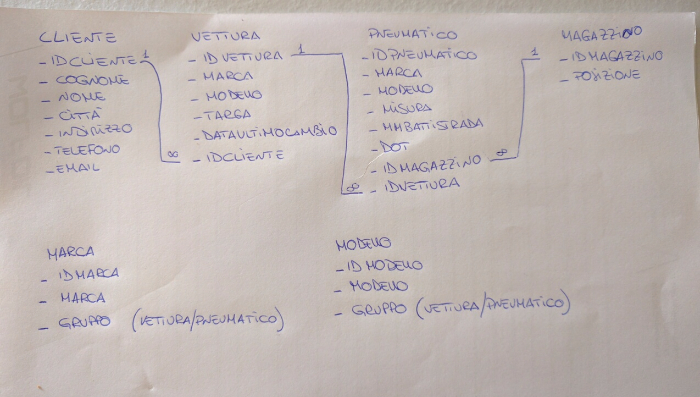 CLIENTE
- IDCLIENTE 1
- COGNOME
- NOME
- CITTÀ
- INDIRIZZO
- TELEFONO
- EMAIL
∞
VETTURA
- IDVETTURA 1
- MARCA
- MODELLO
- TARGA
- DATAULTIMOCAMBIO
- IDCLIENTE
∞
PNEUMATICO
- IDPNEUMATICO
- MARCA
- MODELLO
- MISURA
- MMBATTISTRADA
- DOT
- IDMAGAZZINO ∞
- IDVETTURA
MAGAZZINO
1 - IDMAGAZZINO
- POSIZIONE
MARCA
- IDMARCA
- MARCA
- GRUPPO (VETTURA/PNEUMATICO)
MODELLO
- IDMODELLO
- MODELLO
- GRUPPO (VETTURA/PNEUMATICO)